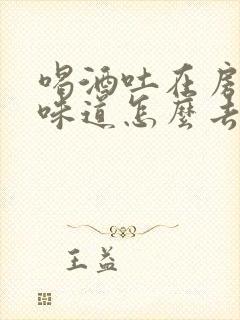 喝酒吐在房
味道怎麼去
王益